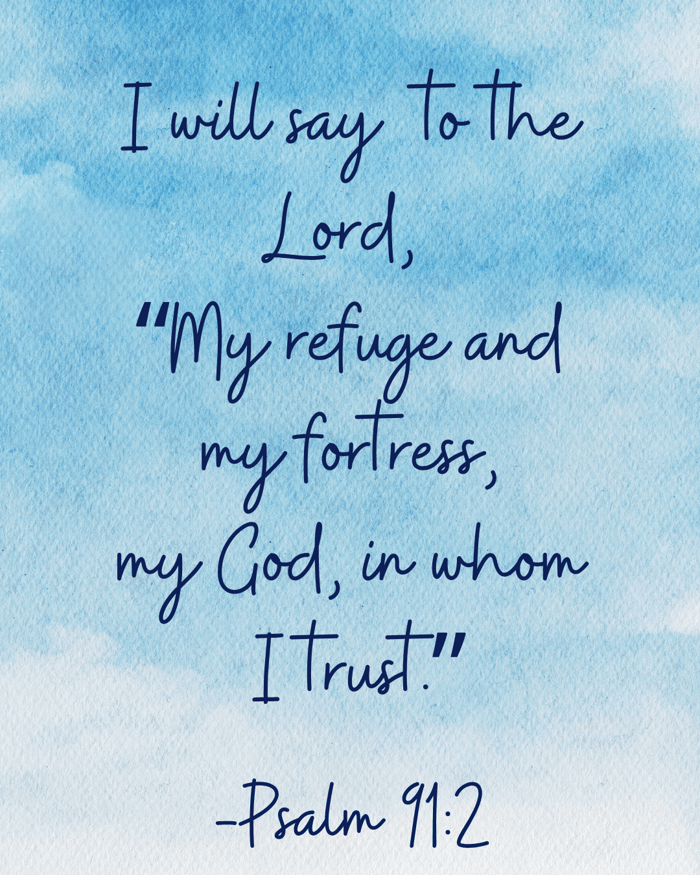 I will say to the
Lord,
“My refuge and
my fortress,
my God, in whom
I trust.”
-Psalm 91:2